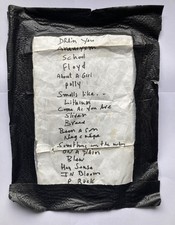 Drain You
Aneurysm
School
Floyd
About A Girl
Polly
Smells like...
Lithium
Come As You Are
Sliver
Breed
Been a Son
Neg creep
Something in the way
ON A Plain
Blew
IN Bloom